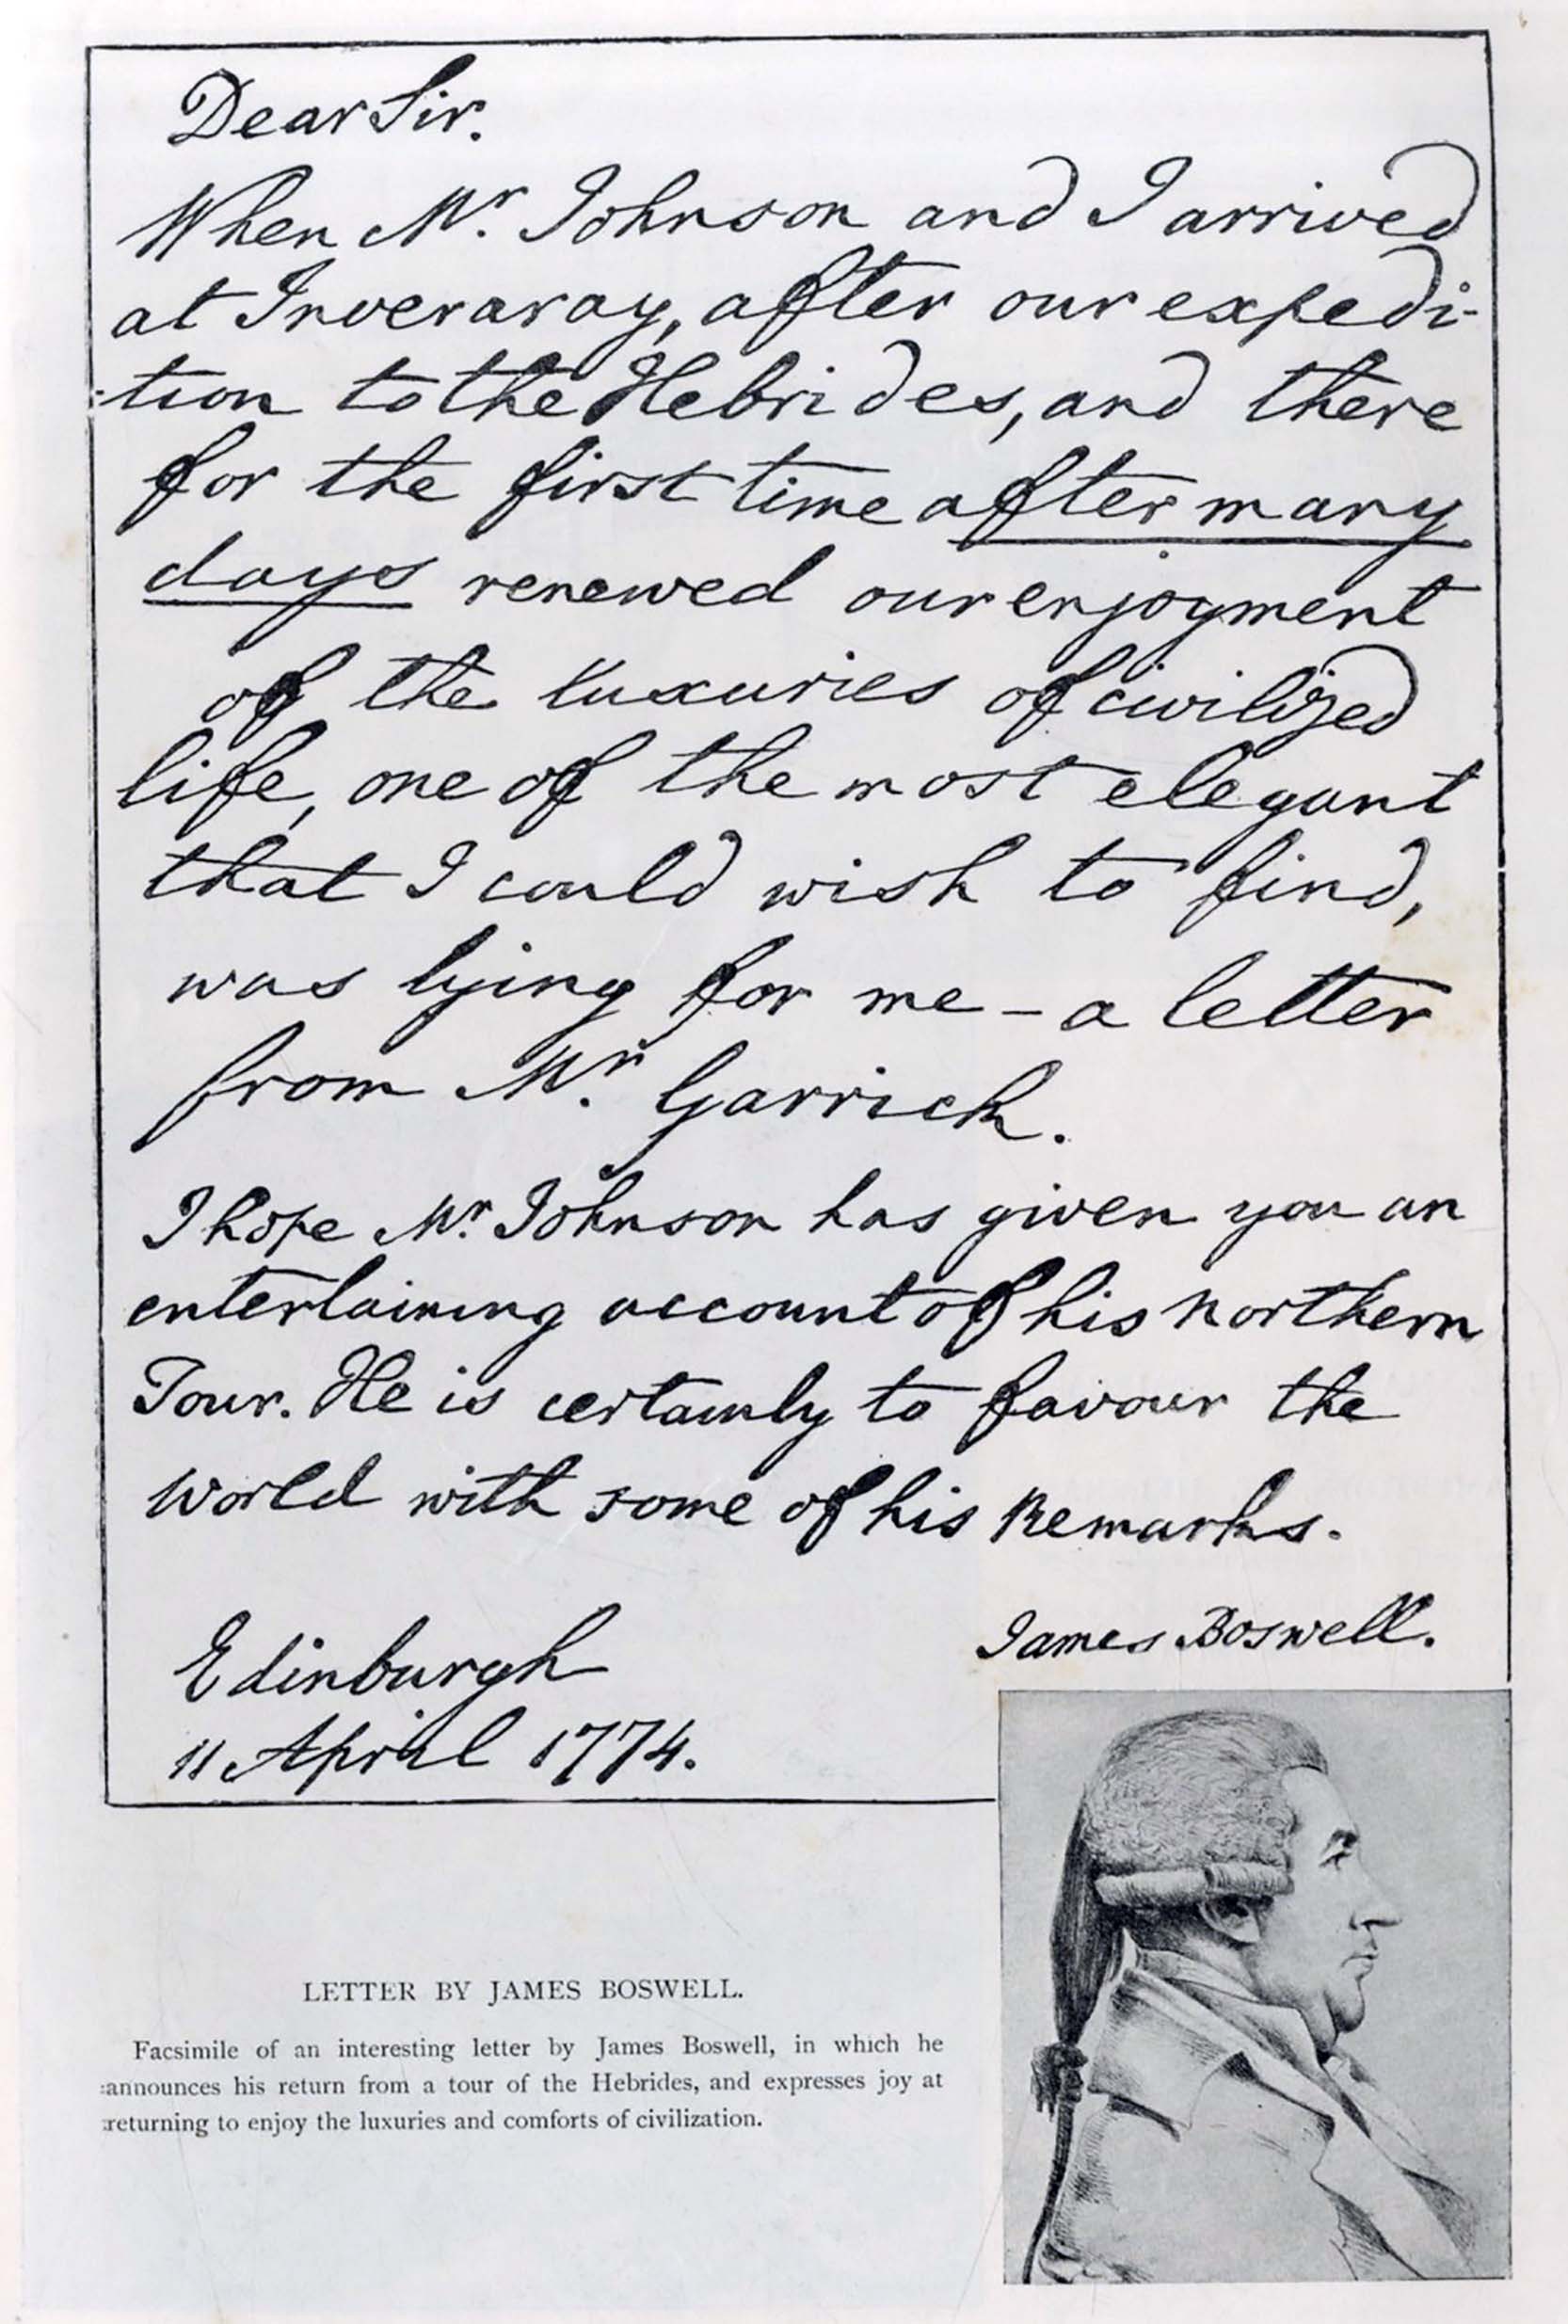 Dear Sir.
When Mr. Johnson and I arrived
at Inveraray, after our expedi-
:tion to the Hebrides, and there
for the first time after many
days renewed our enjoyment
of the luxuries of civilized
life, one of the most elegant
that I could wish to find,
was lying for me – a letter
from Mr. Garrick.
I hope Mr. Johnson has given you an
entertaining account of his Northern
Tour. He is certainly to favour the
World with some of his Remarks.
James Boswell.
Edinburgh
11 April 1774.
LETTER BY JAMES BOSWELL.
Facsimile of an interesting letter by James Boswell, in which he
announces his return from a tour of the Hebrides, and expresses joy at
returning to enjoy the luxuries and comforts of civilization.